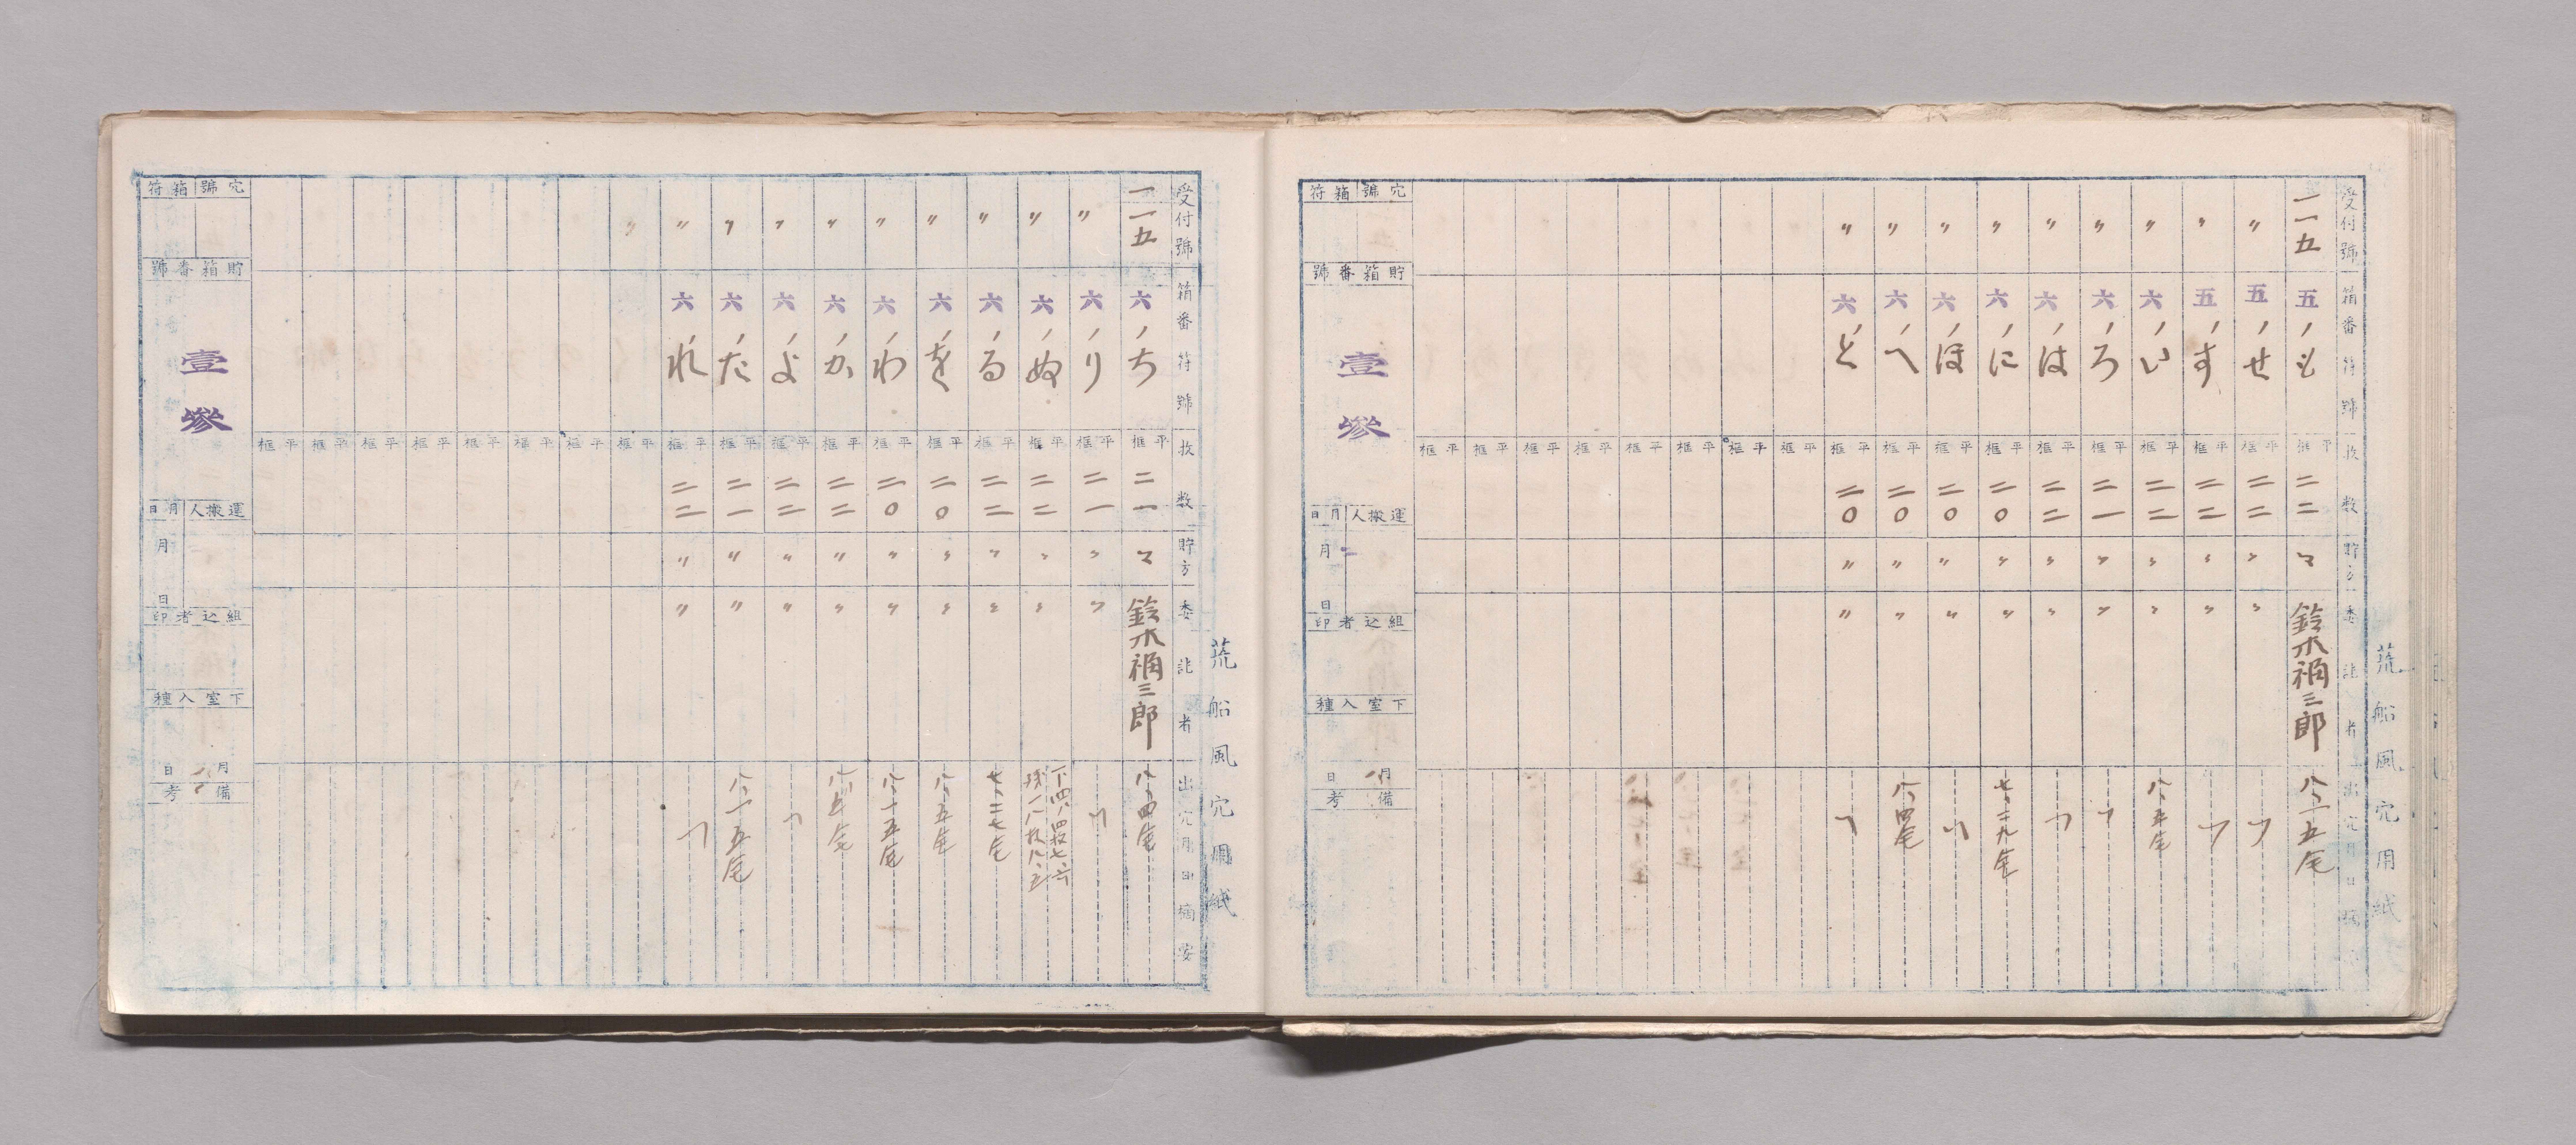 荒船風穴用紙
受付號 箱番符號 枚数 貯方 委託者 出穴月日摘要
一一五 五ノも 平框 二二 鈴木禎三郎 八、一五宅
〃 五ノせ 平框 二二 〃 〃 〃
〃 五ノす 平框 二二 〃 〃 〃
〃 六ノい 平框 二二 〃 〃 八、五宅
〃 六ノろ 平框 二一 〃 〃 〃
〃 六ノは 平框 二二 〃 〃 〃
〃 六ノに 平框 二〇 〃 〃 七、二九宅
〃 六ノほ 平框 二〇 〃 〃 〃
〃 六ノへ 平框 二〇 〃 〃 八、四宅
〃 六ノと 平框 二〇 〃 〃 〃
平框
平框
平框
平框
平框
平框
平框
平框
穴號 箱符
貯箱番號
壹參
運搬人 月日
月 日
組込者印
下室入種
月 日
備考
荒船風穴用紙
受付號 箱番符號 枚数 貯方 委託者 出穴月日摘要
一一五 六ノち 平框 二一 鈴木禎三郎 八、四宅
〃 六ノり 平框 二一 〃 〃 〃
〃 六ノぬ 平框 二二 〃 〃
〃 六ノる 平框 二二 〃 〃 七、二七宅
〃 六ノを 平框 二〇 〃 〃 八、五宅
〃 六ノわ 平框 二〇 〃 〃 八、一五宅
〃 六ノか 平框 二二 〃 〃 八、五宅
〃 六ノよ 平框 二二 〃 〃 〃
〃 六ノた 平框 二一 〃 〃 八、一五宅
〃 六ノれ 平框 二二 〃 〃 〃
〃 平框
平框
平框
平框
平框
平框
平框
平框
穴號 箱符
貯箱番號
壹參
運搬人 月日
月 日
組込者印
下室入種
月 日
備考